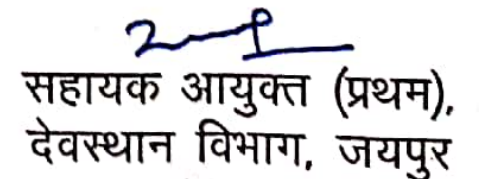 सहायक आयुक्त (प्रथम),
देवस्थान विभाग, जयपुर